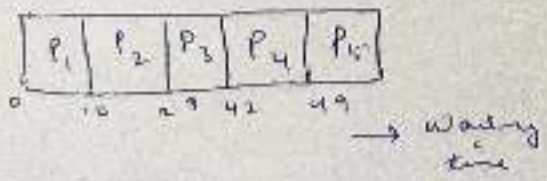 P₁ P₂ P₃ P₄ P₅
0 10 29 42 49
→ Waiting
time